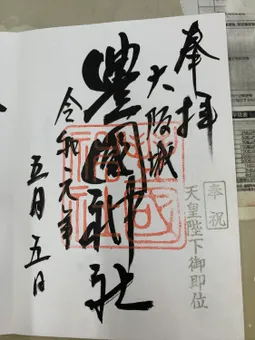 奉拝
大阪城
豊國神社
令和元年
五月五日
奉祝
天皇陛下御即位